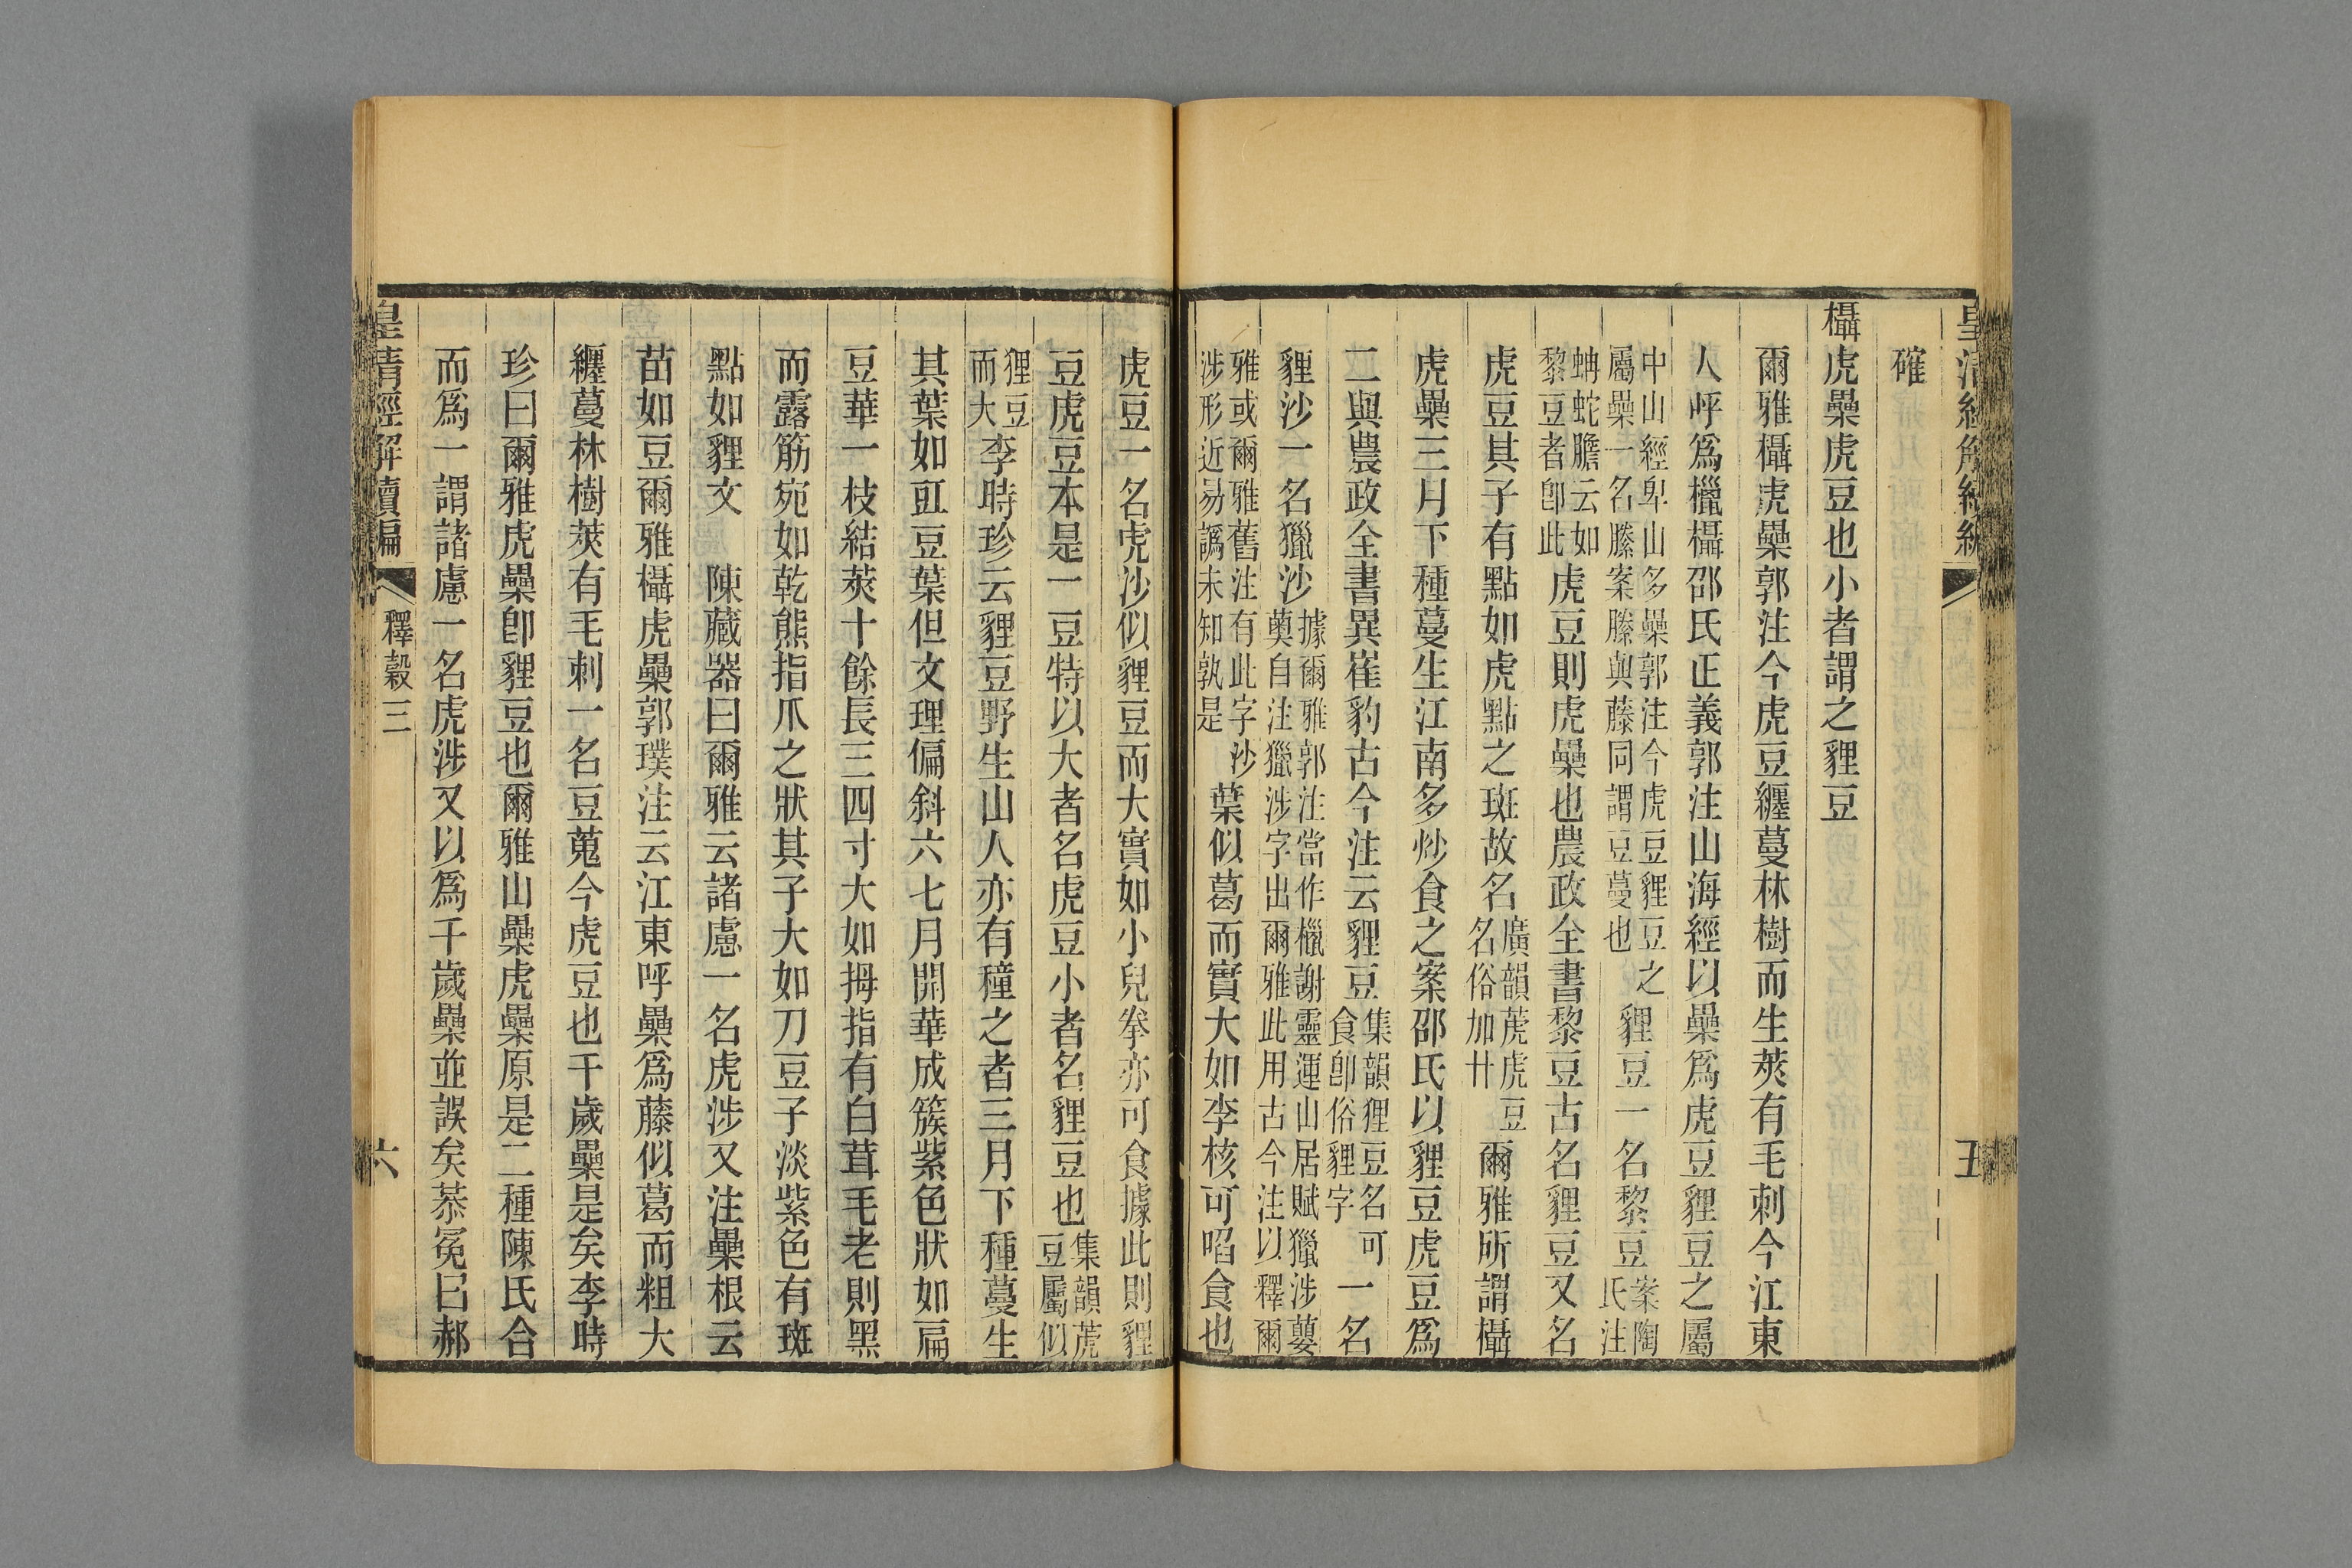 皇清經解續編
五
確
欇虎櫐虎豆也小者謂之貍豆
爾雅欇虎櫐郭注今虎豆纏蔓林樹而生莢有毛刺今江東
人呼爲㯿欇邵氏正義郭注山海經以櫐爲虎豆貍豆之屬
中山經卑山多櫐郭注今虎豆貍豆之
屬櫐一名縢案縢與藤同謂豆蔓也
貍豆一名黎豆
案陶
氏注
蚺蛇膽云如
黎豆者卽此
虎豆則虎櫐也農政全書黎豆古名貍豆又名
虎豆其子有點如虎點之斑故名
廣韻萀虎豆
名俗加艹
爾雅所謂欇
虎櫐三月下種蔓生江南多炒食之案邵氏以貍豆虎豆爲
二與農政全書異崔豹古今注云貍豆
集韻狸豆名可
食卽俗貍字
一名
貍沙一名獵沙
據爾雅郭注當作㯿謝靈運山居賦獵涉蘡
薁自注獵涉字出爾雅此用古今注以釋爾
雅或爾雅舊注有此字沙
涉形近易譌未知孰是
葉似葛而實大如李核可啗食也
虎豆一名虎沙似貍豆而大實如小兒拳亦可食據此則貍
豆虎豆本是一豆特以大者名虎豆小者名貍豆也
集韻萀
豆屬似
狸豆
而大
李時珍云貍豆野生山人亦有穜之者三月下種蔓生
其葉如豇豆葉但文理偏斜六七月開華成簇紫色狀如扁
豆華一枝結莢十餘長三四寸大如拇指有白茸毛老則黑
而露筋宛如乾熊指爪之狀其子大如刀豆子淡紫色有斑
點如貍文　陳藏器曰爾雅云諸慮一名虎涉又注櫐根云
苗如豆爾雅欇虎櫐郭璞注云江東呼櫐爲藤似葛而粗大
纏蔓林樹莢有毛刺一名豆蒐今虎豆也千歲櫐是矣李時
珍曰爾雅虎櫐卽貍豆也爾雅山櫐虎櫐原是二種陳氏合
而爲一謂諸慮一名虎涉又以爲千歲櫐並誤矣恭冕曰郝
皇清經解續編
釋穀三
六